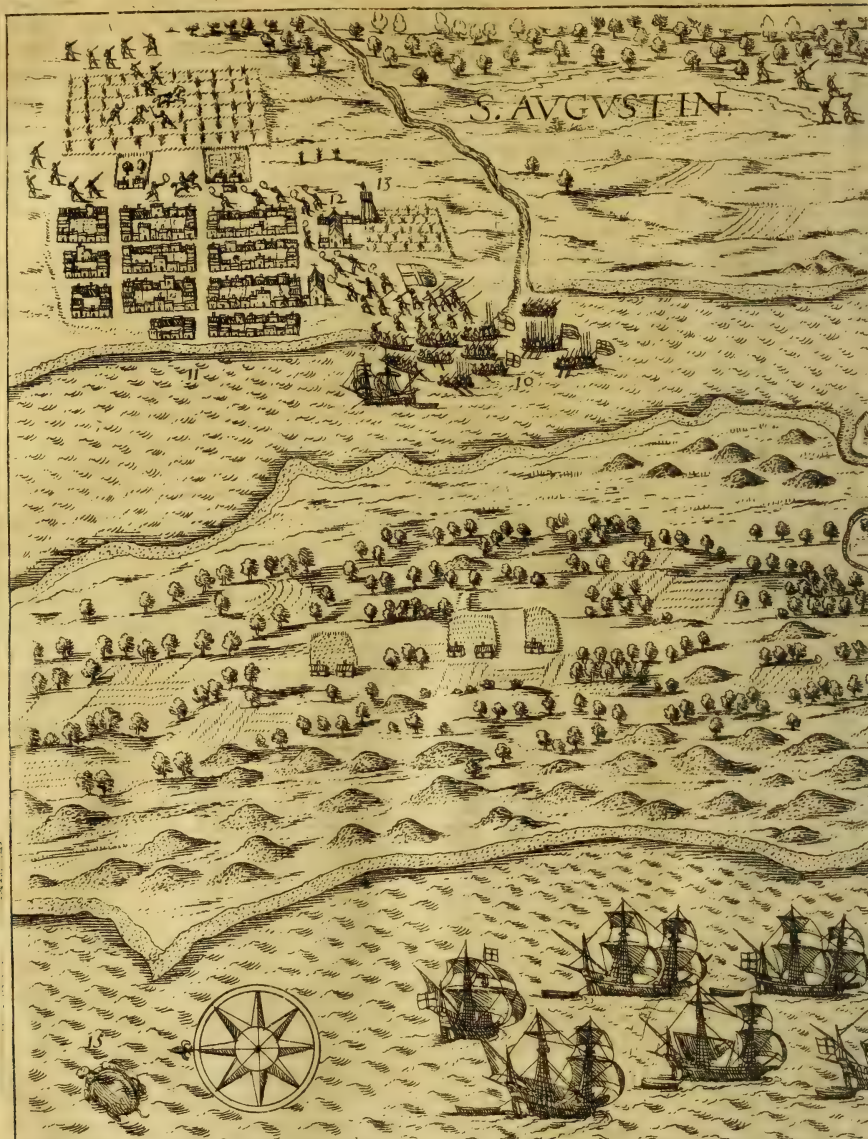 S. AVGVSTIN.
13
12
11
10
15